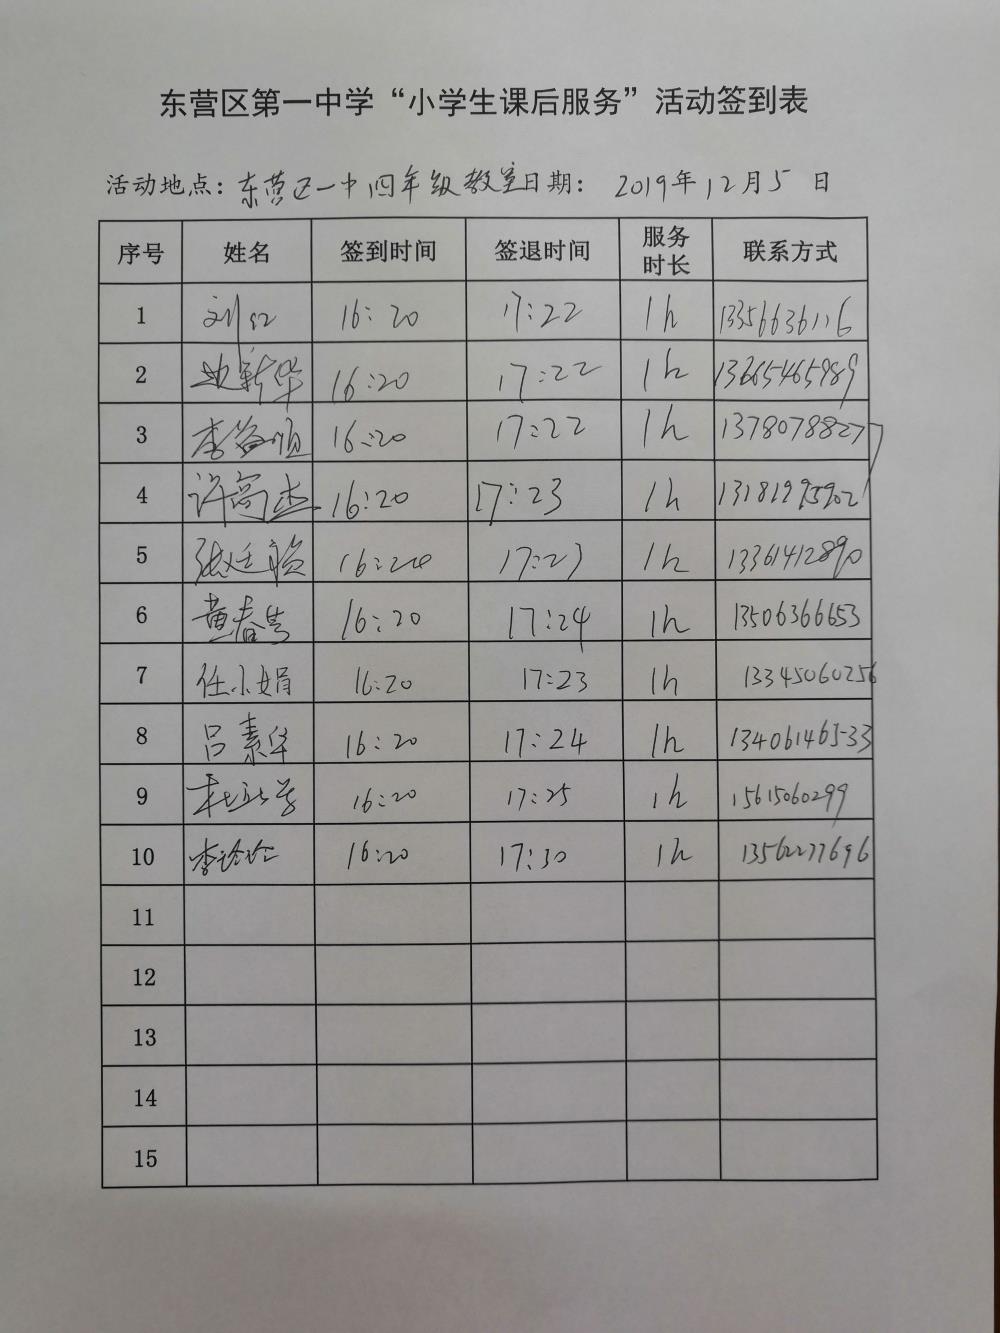 东营区第一中学“小学生课后服务”活动签到表
活动地点：东营区一中四年级教室 日期： 2019年12月5日
序号 姓名 签到时间 签退时间 服务时长 联系方式
1 刘红 16：20 17：22 1h 13356636116
2 新华 16：20 17：22 1h 13665465989
3 李 顺 16：20 17：22 1h 13780788277
4 许高杰 16：20 17：23 1h 13181995902
5 张廷 16：20 17：23 1h 13361412890
6 黄春 16：20 17：24 1h 13506366653
7 任小娟 16：20 17：23 1h 13345060256
8 吕素华 16：20 17：24 1h 13406146533
9 杜 16：20 17：25 1h 15615060299
10 李玲玲 16：20 17：30 1h 13562277696
11
12
13
14
15